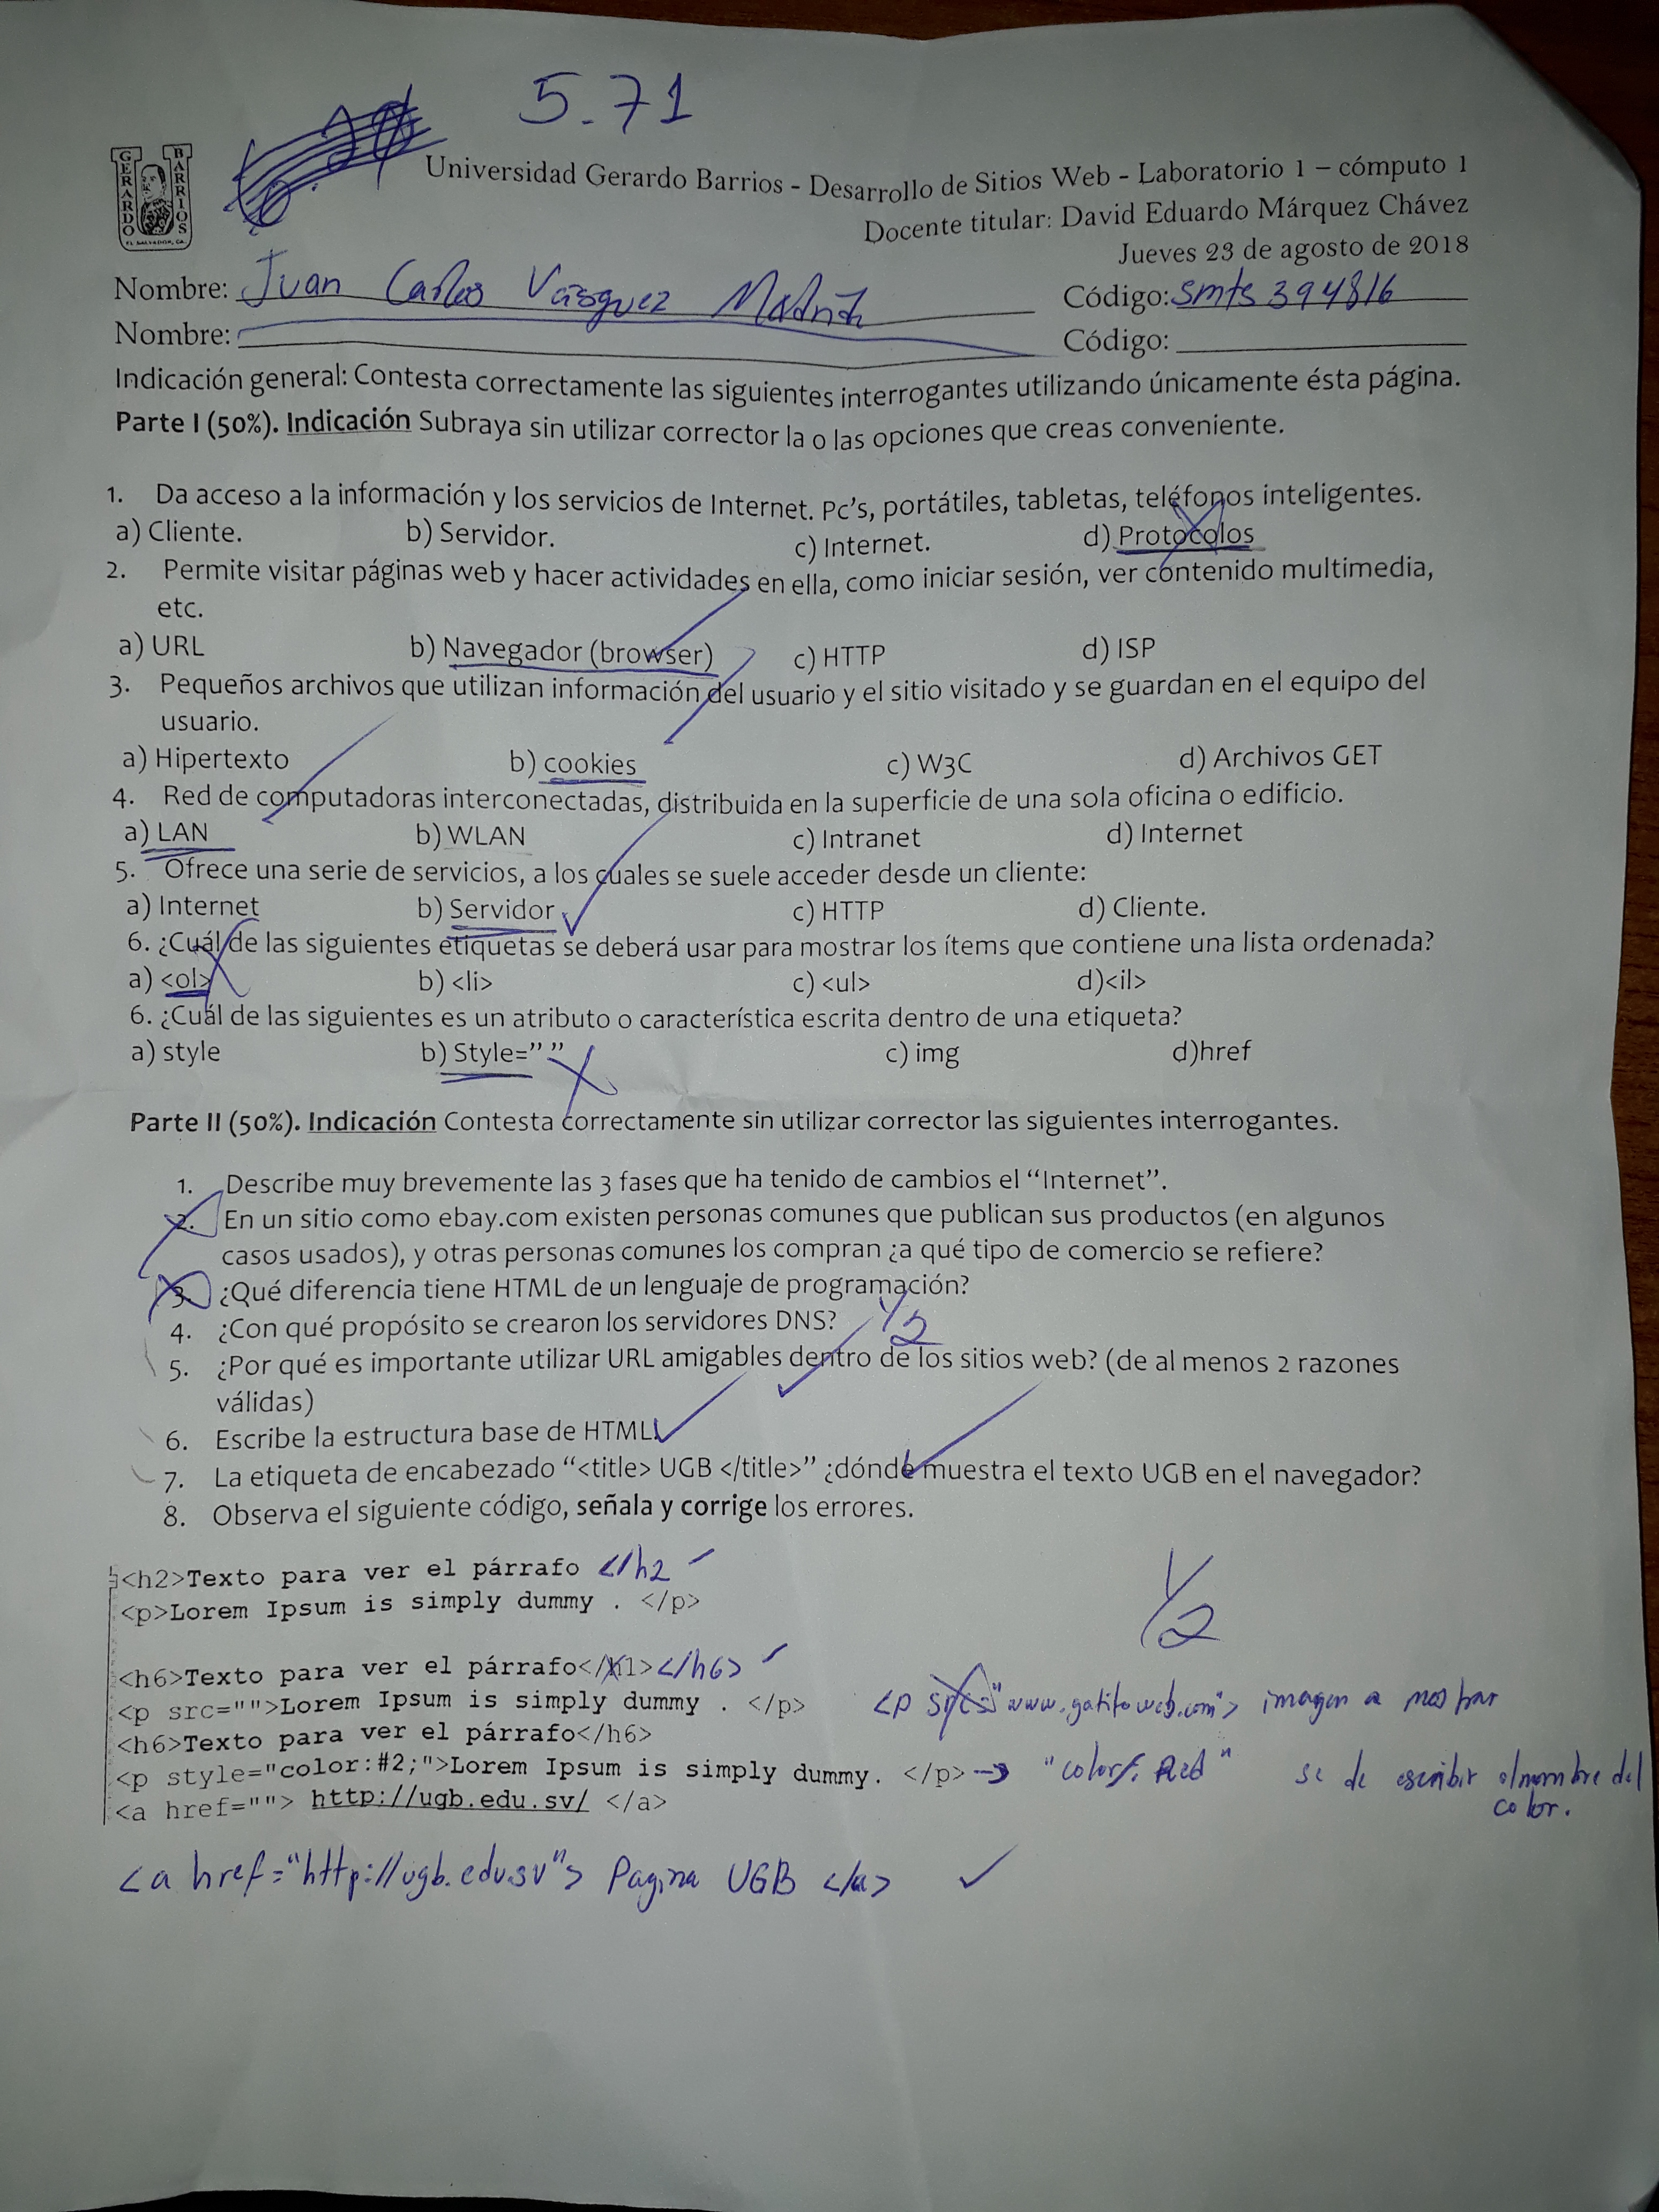 5.71
GERARDO BARRIOS
EL SALVADOR, CA.
Universidad Gerardo Barrios - Desarrollo de Sitios Web - Laboratorio 1 – cómputo 1
Docente titular: David Eduardo Márquez Chávez
Jueves 23 de agosto de 2018
Nombre: Juan Carlos Vásquez Madrid Código: smts394816
Nombre: Código:
Indicación general: Contesta correctamente las siguientes interrogantes utilizando únicamente ésta página.
Parte I (50%). Indicación Subraya sin utilizar corrector la o las opciones que creas conveniente.
1. Da acceso a la información y los servicios de Internet. Pc’s, portátiles, tabletas, teléfonos inteligentes.
a) Cliente. b) Servidor. c) Internet. d) Protocolos
2. Permite visitar páginas web y hacer actividades en ella, como iniciar sesión, ver contenido multimedia,
etc.
a) URL b) Navegador (browser) c) HTTP d) ISP
3. Pequeños archivos que utilizan información del usuario y el sitio visitado y se guardan en el equipo del
usuario.
a) Hipertexto b) cookies c) W3C d) Archivos GET
4. Red de computadoras interconectadas, distribuida en la superficie de una sola oficina o edificio.
a) LAN b) WLAN c) Intranet d) Internet
5. Ofrece una serie de servicios, a los cuales se suele acceder desde un cliente:
a) Internet b) Servidor c) HTTP d) Cliente.
6. ¿Cuál de las siguientes etiquetas se deberá usar para mostrar los ítems que contiene una lista ordenada?
a) <ol> b) <li> c) <ul> d)<il>
6. ¿Cuál de las siguientes es un atributo o característica escrita dentro de una etiqueta?
a) style b) Style=” ” c) img d)href
Parte II (50%). Indicación Contesta correctamente sin utilizar corrector las siguientes interrogantes.
1. Describe muy brevemente las 3 fases que ha tenido de cambios el “Internet”.
2. En un sitio como ebay.com existen personas comunes que publican sus productos (en algunos
casos usados), y otras personas comunes los compran ¿a qué tipo de comercio se refiere?
3. ¿Qué diferencia tiene HTML de un lenguaje de programación?
4. ¿Con qué propósito se crearon los servidores DNS? 1/2
5. ¿Por qué es importante utilizar URL amigables dentro de los sitios web? (de al menos 2 razones
válidas)
6. Escribe la estructura base de HTML.
7. La etiqueta de encabezado “<title> UGB </title>” ¿dónde muestra el texto UGB en el navegador?
8. Observa el siguiente código, señala y corrige los errores.
<h2>Texto para ver el párrafo </h2
<p>Lorem Ipsum is simply dummy . </p>
1/2
<h6>Texto para ver el párrafo</h1></h6>
<p src="">Lorem Ipsum is simply dummy . </p> <p "www.gatitoweb.com"> imagen a mostrar
<h6>Texto para ver el párrafo</h6>
<p style="color:#2;">Lorem Ipsum is simply dummy. </p> → "color: Red" se de escribir el nombre del
color.
<a href=""> http://ugb.edu.sv/ </a>
<a href="http://ugb.edu.sv"> Pagina UGB </a>